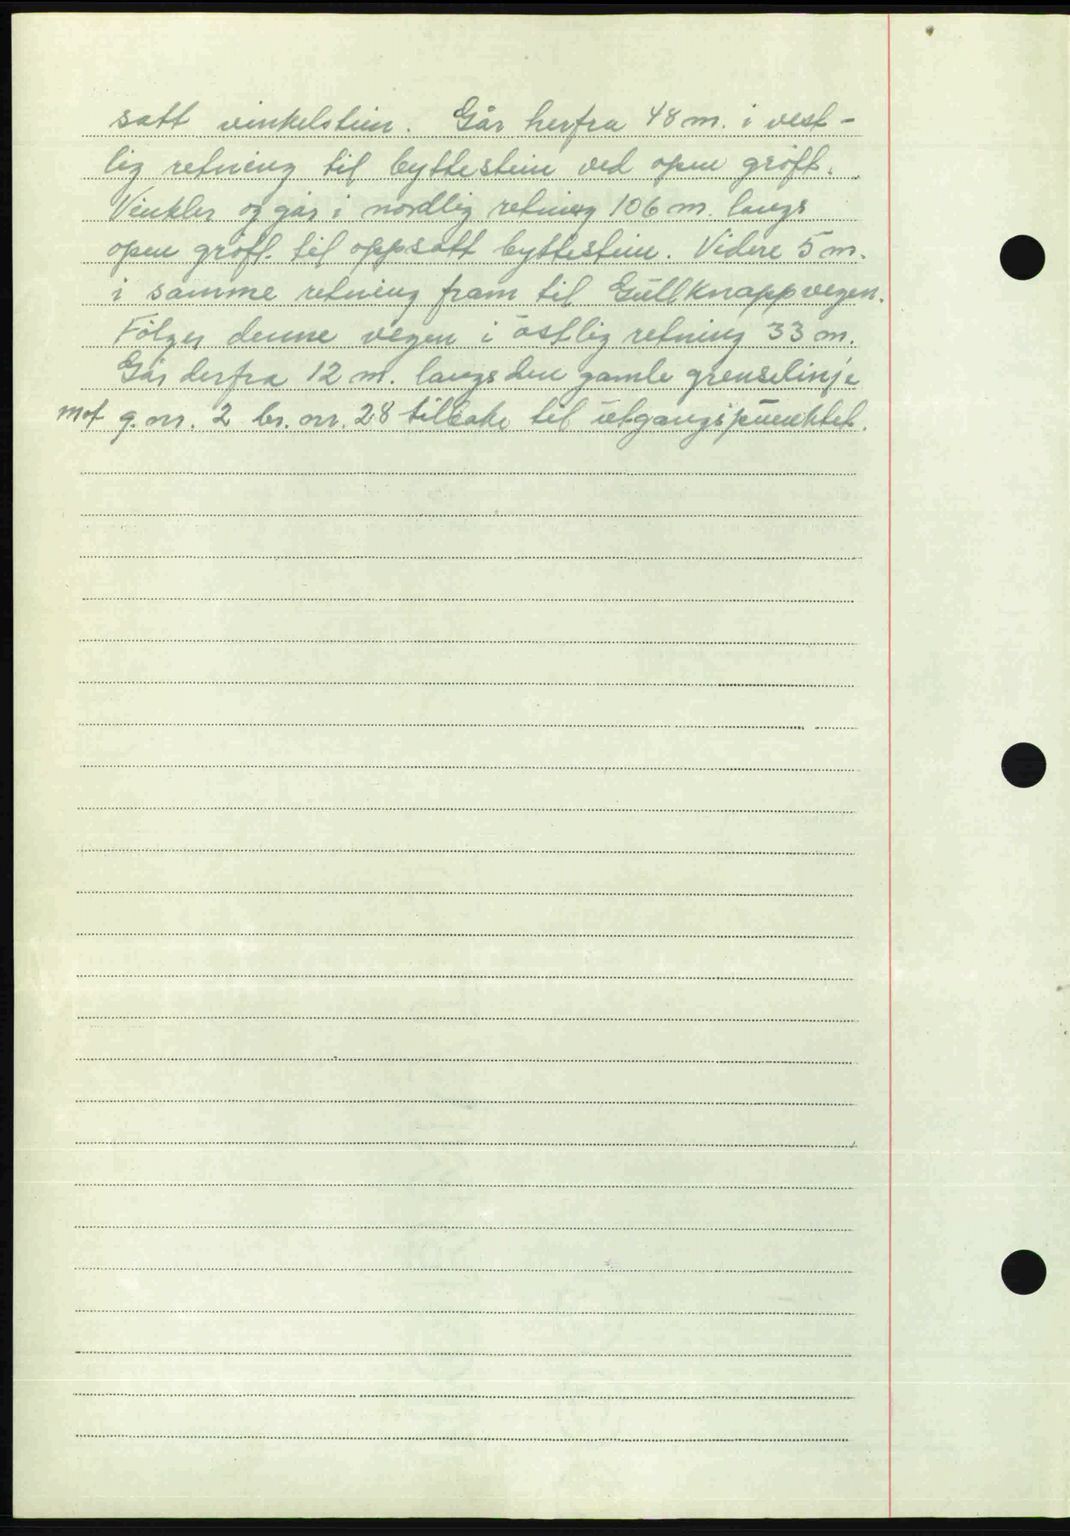 satt vinkelstein. Går herfra 48 m. i vest-
lig retning til byttestein ved open grøft.
Vinkler og går i nordlig retning 106 m. langs
open grøft til oppsatt byttestein. Videre 5 m.
i samme retning fram til Gullknappvegen.
Følger denne vegen i østlig retning 33 m.
Går derfra 12 m. langs den gamle grenselinje
mot g.nr. 2 br. nr. 28 tilbake til utgangspunktet.